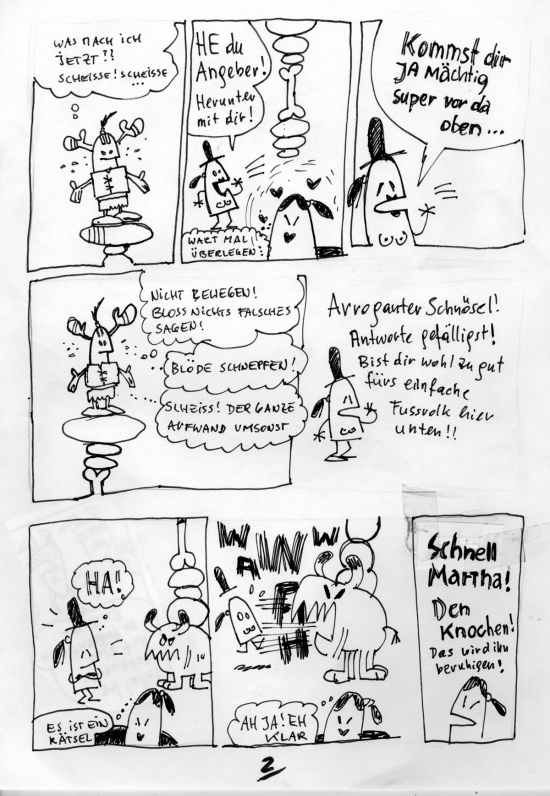 WAS MACH ICH
JETZT?!
SCHEISSE! SCHEISSE
...
HE du
Angeber!
Herunter
mit dir!
WART MAL!
ÜBERLEGEN:
Kommst dir
JA Mächtig
super vor da
oben...
NICHT BEWEGEN!
BLOSS NICHTS FALSCHES
SAGEN!
BLÖDE SCHNEPFEN!
SCHEISS! DER GANZE
AUFWAND UMSONST
Arroganter Schnösel!
Antworte gefälligst!
Bist dir wohl zu gut
fürs einfache
Fussvolk hier
unten!!
HA!
ES IST EIN
RÄTSEL
AH JA! EH
KLAR
Schnell
Martha!
Den
Knochen!
Das wird ihn
beruhigen!
2